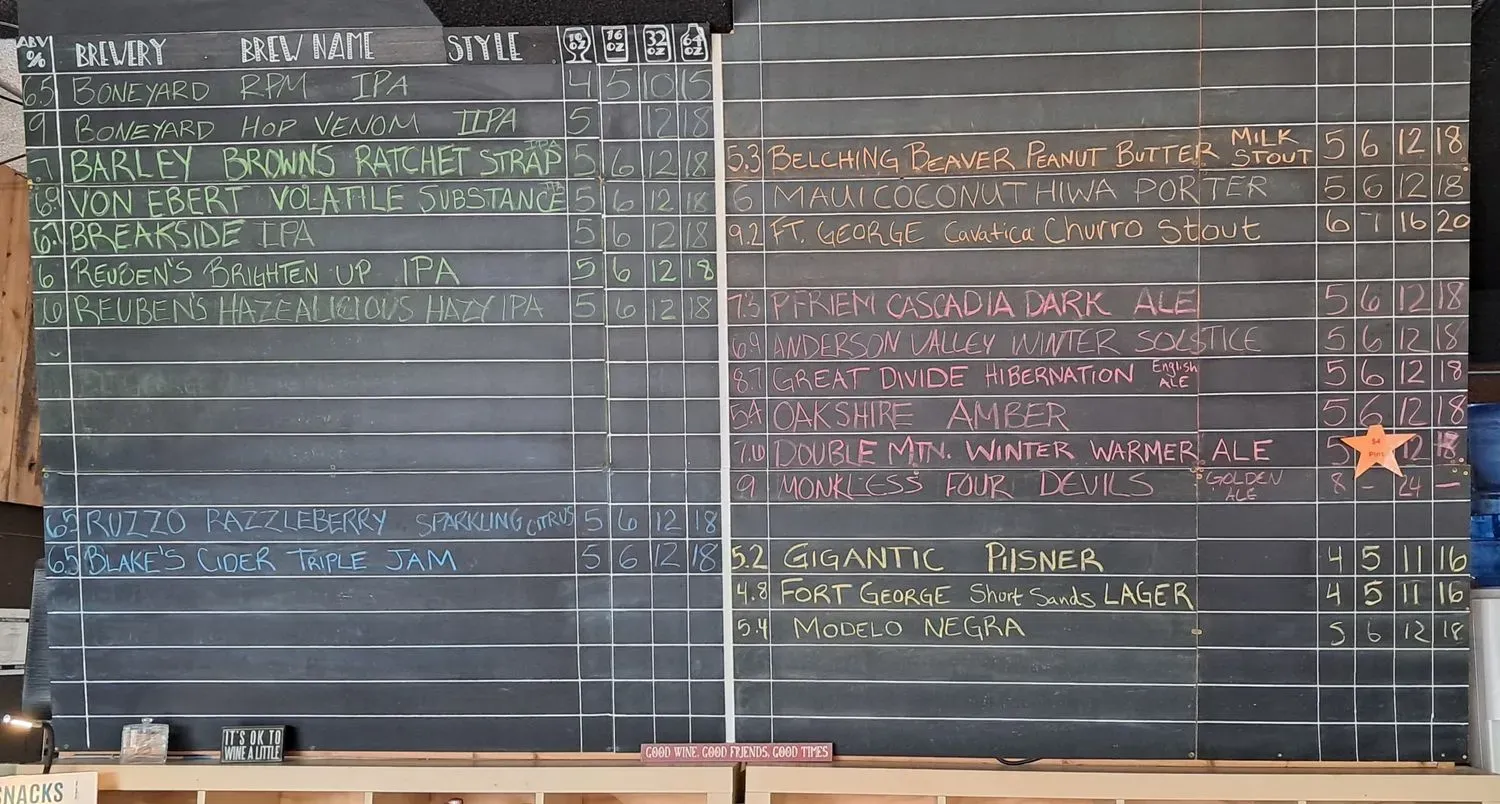 ABV % BREWERY BREW NAME STYLE 10 OZ 16 OZ 32 OZ 64 OZ
6.5 BONEYARD RPM IPA 4 5 10 15
9 BONEYARD HOP VENOM IIPA 5 12 18
7 BARLEY BROWN'S RATCHET STRAP IPA 5 6 12 18
6.9 VON EBERT VOLATILE SUBSTANCE IPA 5 6 12 18
BREAKSIDE IPA 5 6 12 18
6 REUBEN'S BRIGHTEN UP IPA 5 6 12 18
REUBEN'S HAZEALICIOUS HAZY IPA 5 6 12 18
6.5 RUZZO RAZZLEBERRY SPARKLING CITRUS 5 6 12 18
6.5 BLAKE'S CIDER TRIPLE JAM 5 6 12 18
5.3 BELCHING BEAVER PEANUT BUTTER MILK STOUT 5 6 12 18
6 MAUI COCONUT HIWA PORTER 5 6 12 18
9.2 FT. GEORGE Cavatica Churro Stout 6 7 16 20
7.3 PFRIEM CASCADIA DARK ALE 5 6 12 18
6.9 ANDERSON VALLEY WINTER SOLSTICE 5 6 12 18
8.7 GREAT DIVIDE HIBERNATION English ALE 5 6 12 18
5.4 OAKSHIRE AMBER 5 6 12 18
DOUBLE MTN. WINTER WARMER ALE 5 $4 Pint 12 18
9 MONKLESS FOUR DEVILS GOLDEN ALE 8 - 24 -
5.2 GIGANTIC PilSNER 4 5 11 16
4.8 FORT GEORGE Short Sands LAGER 4 5 11 16
5.4 MODELO NEGRA 5 6 12 18
IT'S OK TO
WINE A LITTLE
GOOD WINE. GOOD FRIENDS. GOOD TIMES
SNACKS